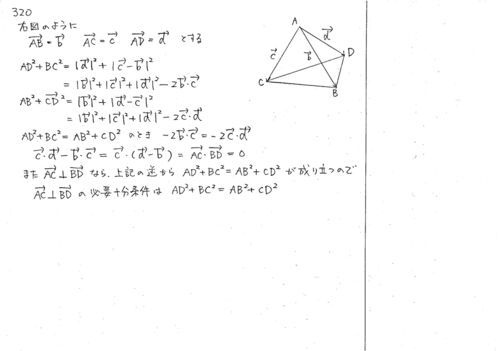 320
右図のように
$\overrightarrow{AB}=\vec{b}$ $\overrightarrow{AC}=\vec{c}$ $\overrightarrow{AD}=\vec{d}$ とする
$AD^2+BC^2=|\vec{d}|^2+|\vec{c}-\vec{b}|^2$
$=|\vec{b}|^2+|\vec{c}|^2+|\vec{d}|^2-2\vec{b}\cdot\vec{c}$
$AB^2+\overrightarrow{CD}^2=|\vec{b}|^2+|\vec{d}-\vec{c}|^2$
$=|\vec{b}|^2+|\vec{c}|^2+|\vec{d}|^2-2\vec{c}\cdot\vec{d}$
$AD^2+BC^2=AB^2+CD^2$ のとき $-2\vec{b}\cdot\vec{c}=-2\vec{c}\cdot\vec{d}$
$\vec{c}\cdot\vec{d}-\vec{b}\cdot\vec{c}=\vec{c}\cdot(\vec{d}-\vec{b})=\overrightarrow{AC}\cdot\overrightarrow{BD}=0$
また $\overrightarrow{AC}\perp\overrightarrow{BD}$ なら、上記の逆から $AD^2+BC^2=AB^2+CD^2$ が成り立つので
$\overrightarrow{AC}\perp\overrightarrow{BD}$ の必要十分条件は $AD^2+BC^2=AB^2+CD^2$
A
$\vec{d}$
$\vec{c}$
$\vec{b}$
D
C
B